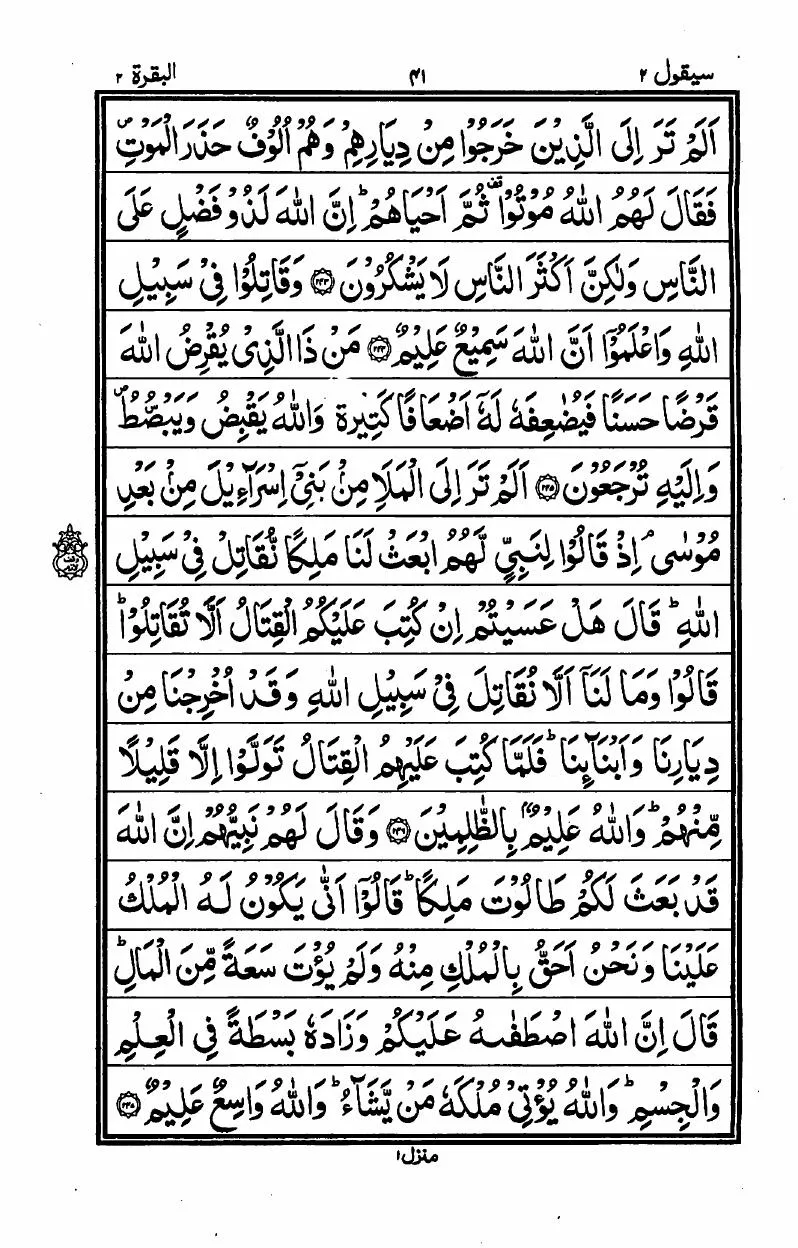 سيقول ٢ ٤١ البقرة ٢
اَلَمْ تَرَ اِلَى الَّذِيْنَ خَرَجُوْا مِنْ دِيَارِهِمْ وَهُمْ اُلُوْفٌ حَذَرَ الْمَوْتِ
فَقَالَ لَهُمُ اللّٰهُ مُوْتُوْا ثُمَّ اَحْيَاهُمْ ؕ اِنَّ اللّٰهَ لَذُوْ فَضْلٍ عَلَى
النَّاسِ وَلٰكِنَّ اَكْثَرَ النَّاسِ لَا يَشْكُرُوْنَ ﴿٢٤٣﴾ وَقَاتِلُوْا فِيْ سَبِيْلِ
اللّٰهِ وَاعْلَمُوْٓا اَنَّ اللّٰهَ سَمِيْعٌ عَلِيْمٌ ﴿٢٤٤﴾ مَنْ ذَا الَّذِيْ يُقْرِضُ اللّٰهَ
قَرْضًا حَسَنًا فَيُضٰعِفَهٗ لَهٗٓ اَضْعَافًا كَثِيْرَةً ؕ وَاللّٰهُ يَقْبِضُ وَيَبْصُۜطُ ۪
وَاِلَيْهِ تُرْجَعُوْنَ ﴿٢٤٥﴾ اَلَمْ تَرَ اِلَى الْمَلَاِ مِنْۢ بَنِيْٓ اِسْرَآءِيْلَ مِنْۢ بَعْدِ
مُوْسٰى ۘ اِذْ قَالُوْا لِنَبِيٍّ لَّهُمُ ابْعَثْ لَنَا مَلِكًا نُّقَاتِلْ فِيْ سَبِيْلِ
اللّٰهِ ؕ قَالَ هَلْ عَسَيْتُمْ اِنْ كُتِبَ عَلَيْكُمُ الْقِتَالُ اَلَّا تُقَاتِلُوْا ؕ
قَالُوْا وَمَا لَنَآ اَلَّا نُقَاتِلَ فِيْ سَبِيْلِ اللّٰهِ وَقَدْ اُخْرِجْنَا مِنْ
دِيَارِنَا وَاَبْنَآئِنَا ؕ فَلَمَّا كُتِبَ عَلَيْهِمُ الْقِتَالُ تَوَلَّوْا اِلَّا قَلِيْلًا
مِّنْهُمْ ؕ وَاللّٰهُ عَلِيْمٌۢ بِالظّٰلِمِيْنَ ﴿٢٤٦﴾ وَقَالَ لَهُمْ نَبِيُّهُمْ اِنَّ اللّٰهَ
قَدْ بَعَثَ لَكُمْ طَالُوْتَ مَلِكًا ؕ قَالُوْٓا اَنّٰى يَكُوْنُ لَهُ الْمُلْكُ
عَلَيْنَا وَنَحْنُ اَحَقُّ بِالْمُلْكِ مِنْهُ وَلَمْ يُؤْتَ سَعَةً مِّنَ الْمَالِ ؕ
قَالَ اِنَّ اللّٰهَ اصْطَفٰىهُ عَلَيْكُمْ وَزَادَهٗ بَسْطَةً فِي الْعِلْمِ
وَالْجِسْمِ ؕ وَاللّٰهُ يُؤْتِيْ مُلْكَهٗ مَنْ يَّشَآءُ ؕ وَاللّٰهُ وَاسِعٌ عَلِيْمٌ ﴿٢٤٧﴾
منزل ١